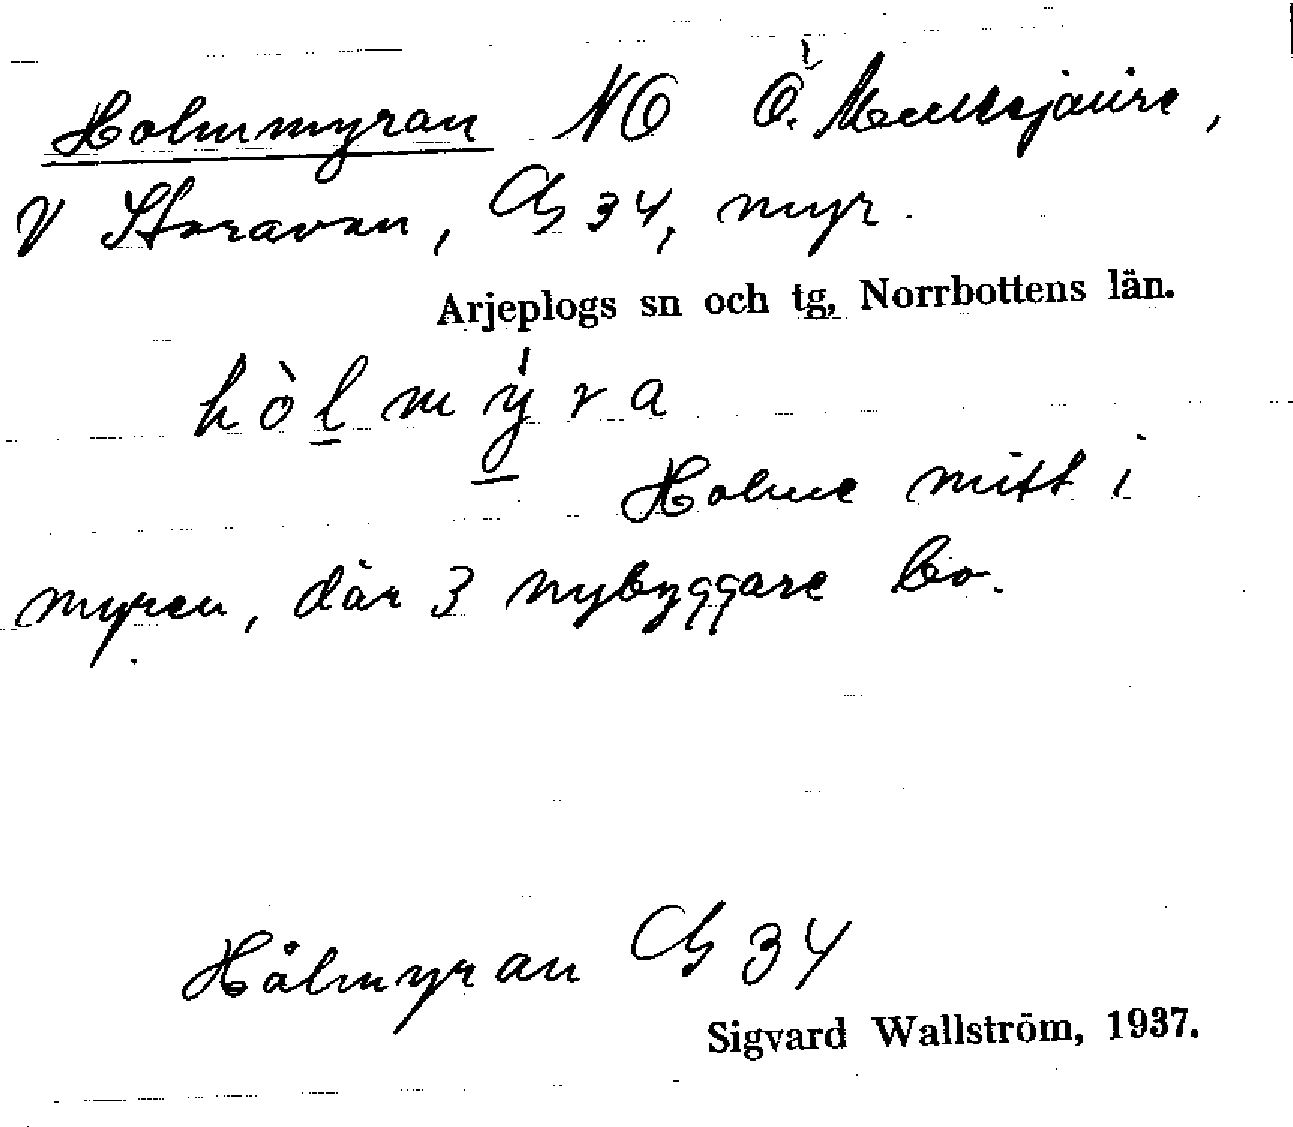 Holmmyran NO Ö. Maussjaure,
V Storavan, G 34, myr.
Arjeplogs sn och tg, Norrbottens län.
hòlmýra
Holme mitt i
myren, där 3 nybyggare bo.
Hålmyran G 34
Sigvard Wallström, 1937.